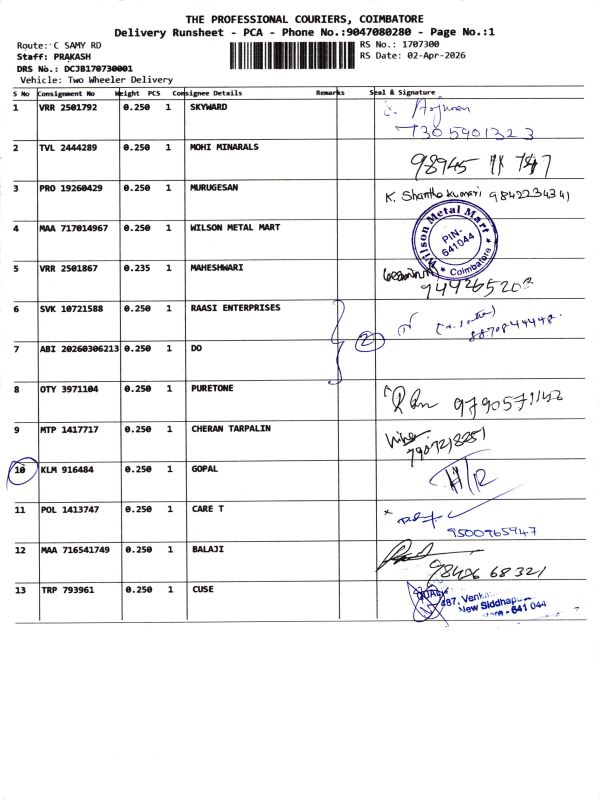 THE PROFESSIONAL COURIERS, COIMBATORE
Delivery Runsheet - PCA - Phone No.:9047080280 - Page No.:1
Route: C SAMY RD
RS No.: 1707300
Staff: PRAKASH
RS Date: 02-Apr-2026
DRS No.: DCJB170730001
Vehicle: Two Wheeler Delivery
S No Consignment No Weight PCS Consignee Details Remarks Seal & Signature
1 VRR 2501792 0.250 1 SKYWARD
7305901323
2 TVL 2444289 0.250 1 MOHI MINARALS
98945 11 747
3 PRO 19260429 0.250 1 MURUGESAN K. Shantha kumari 9842234341
4 MAA 717014967 0.250 1 WILSON METAL MART Wilson Metal Mart PIN- 641044 Coimbatore
5 VRR 2501867 0.235 1 MAHESHWARI
944265203
6 SVK 10721588 0.250 1 RAASI ENTERPRISES
2
8870844448
7 ABI 20260306213 0.250 1 DO
8 OTY 3971104 0.250 1 PURETONE 9790571142
9 MTP 1417717 0.250 1 CHERAN TARPALIN
10 KLM 916484 0.250 1 GOPAL H/R
11 POL 1413747 0.250 1 CARE T
9500965947
12 MAA 716541749 0.250 1 BALAJI
98406 68321
13 TRP 793961 0.250 1 CUSE
New
641 044